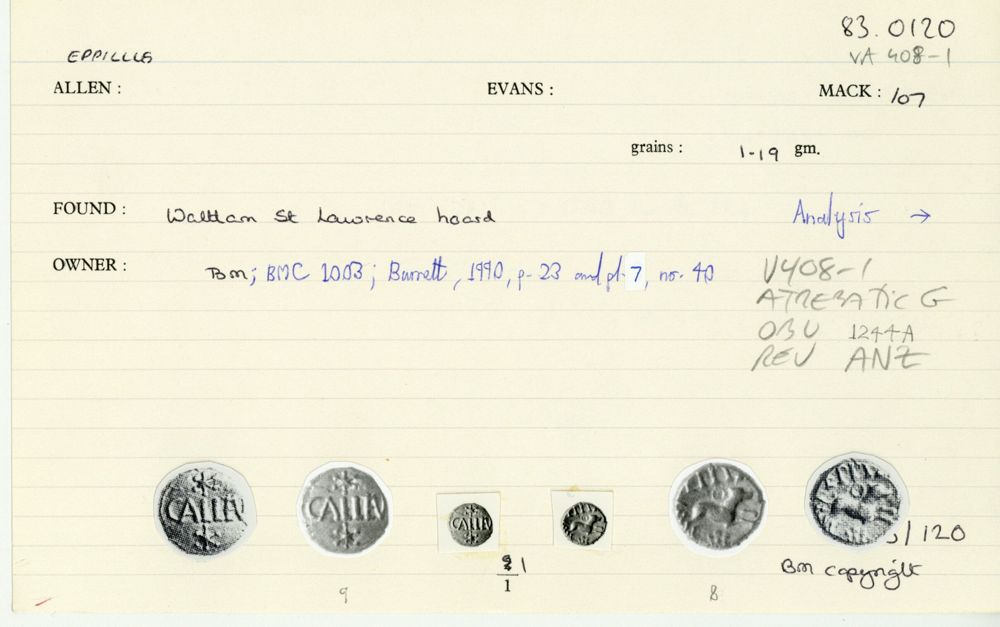 83.0120
EPPILLUS VA 408-1
ALLEN : EVANS : MACK : 107
grains : 1-19 gm.
FOUND : Waltham St Lawrence hoard Analysis →
OWNER : BM; BMC 1003; Burnett, 1990, p. 23 and pl. 7, no. 40
V408-1
ATREBATIC G
OBV 1244A
REV ANZ
CALLEV CALLEV CALLEV
/120
1
1
BM copyright
9 8